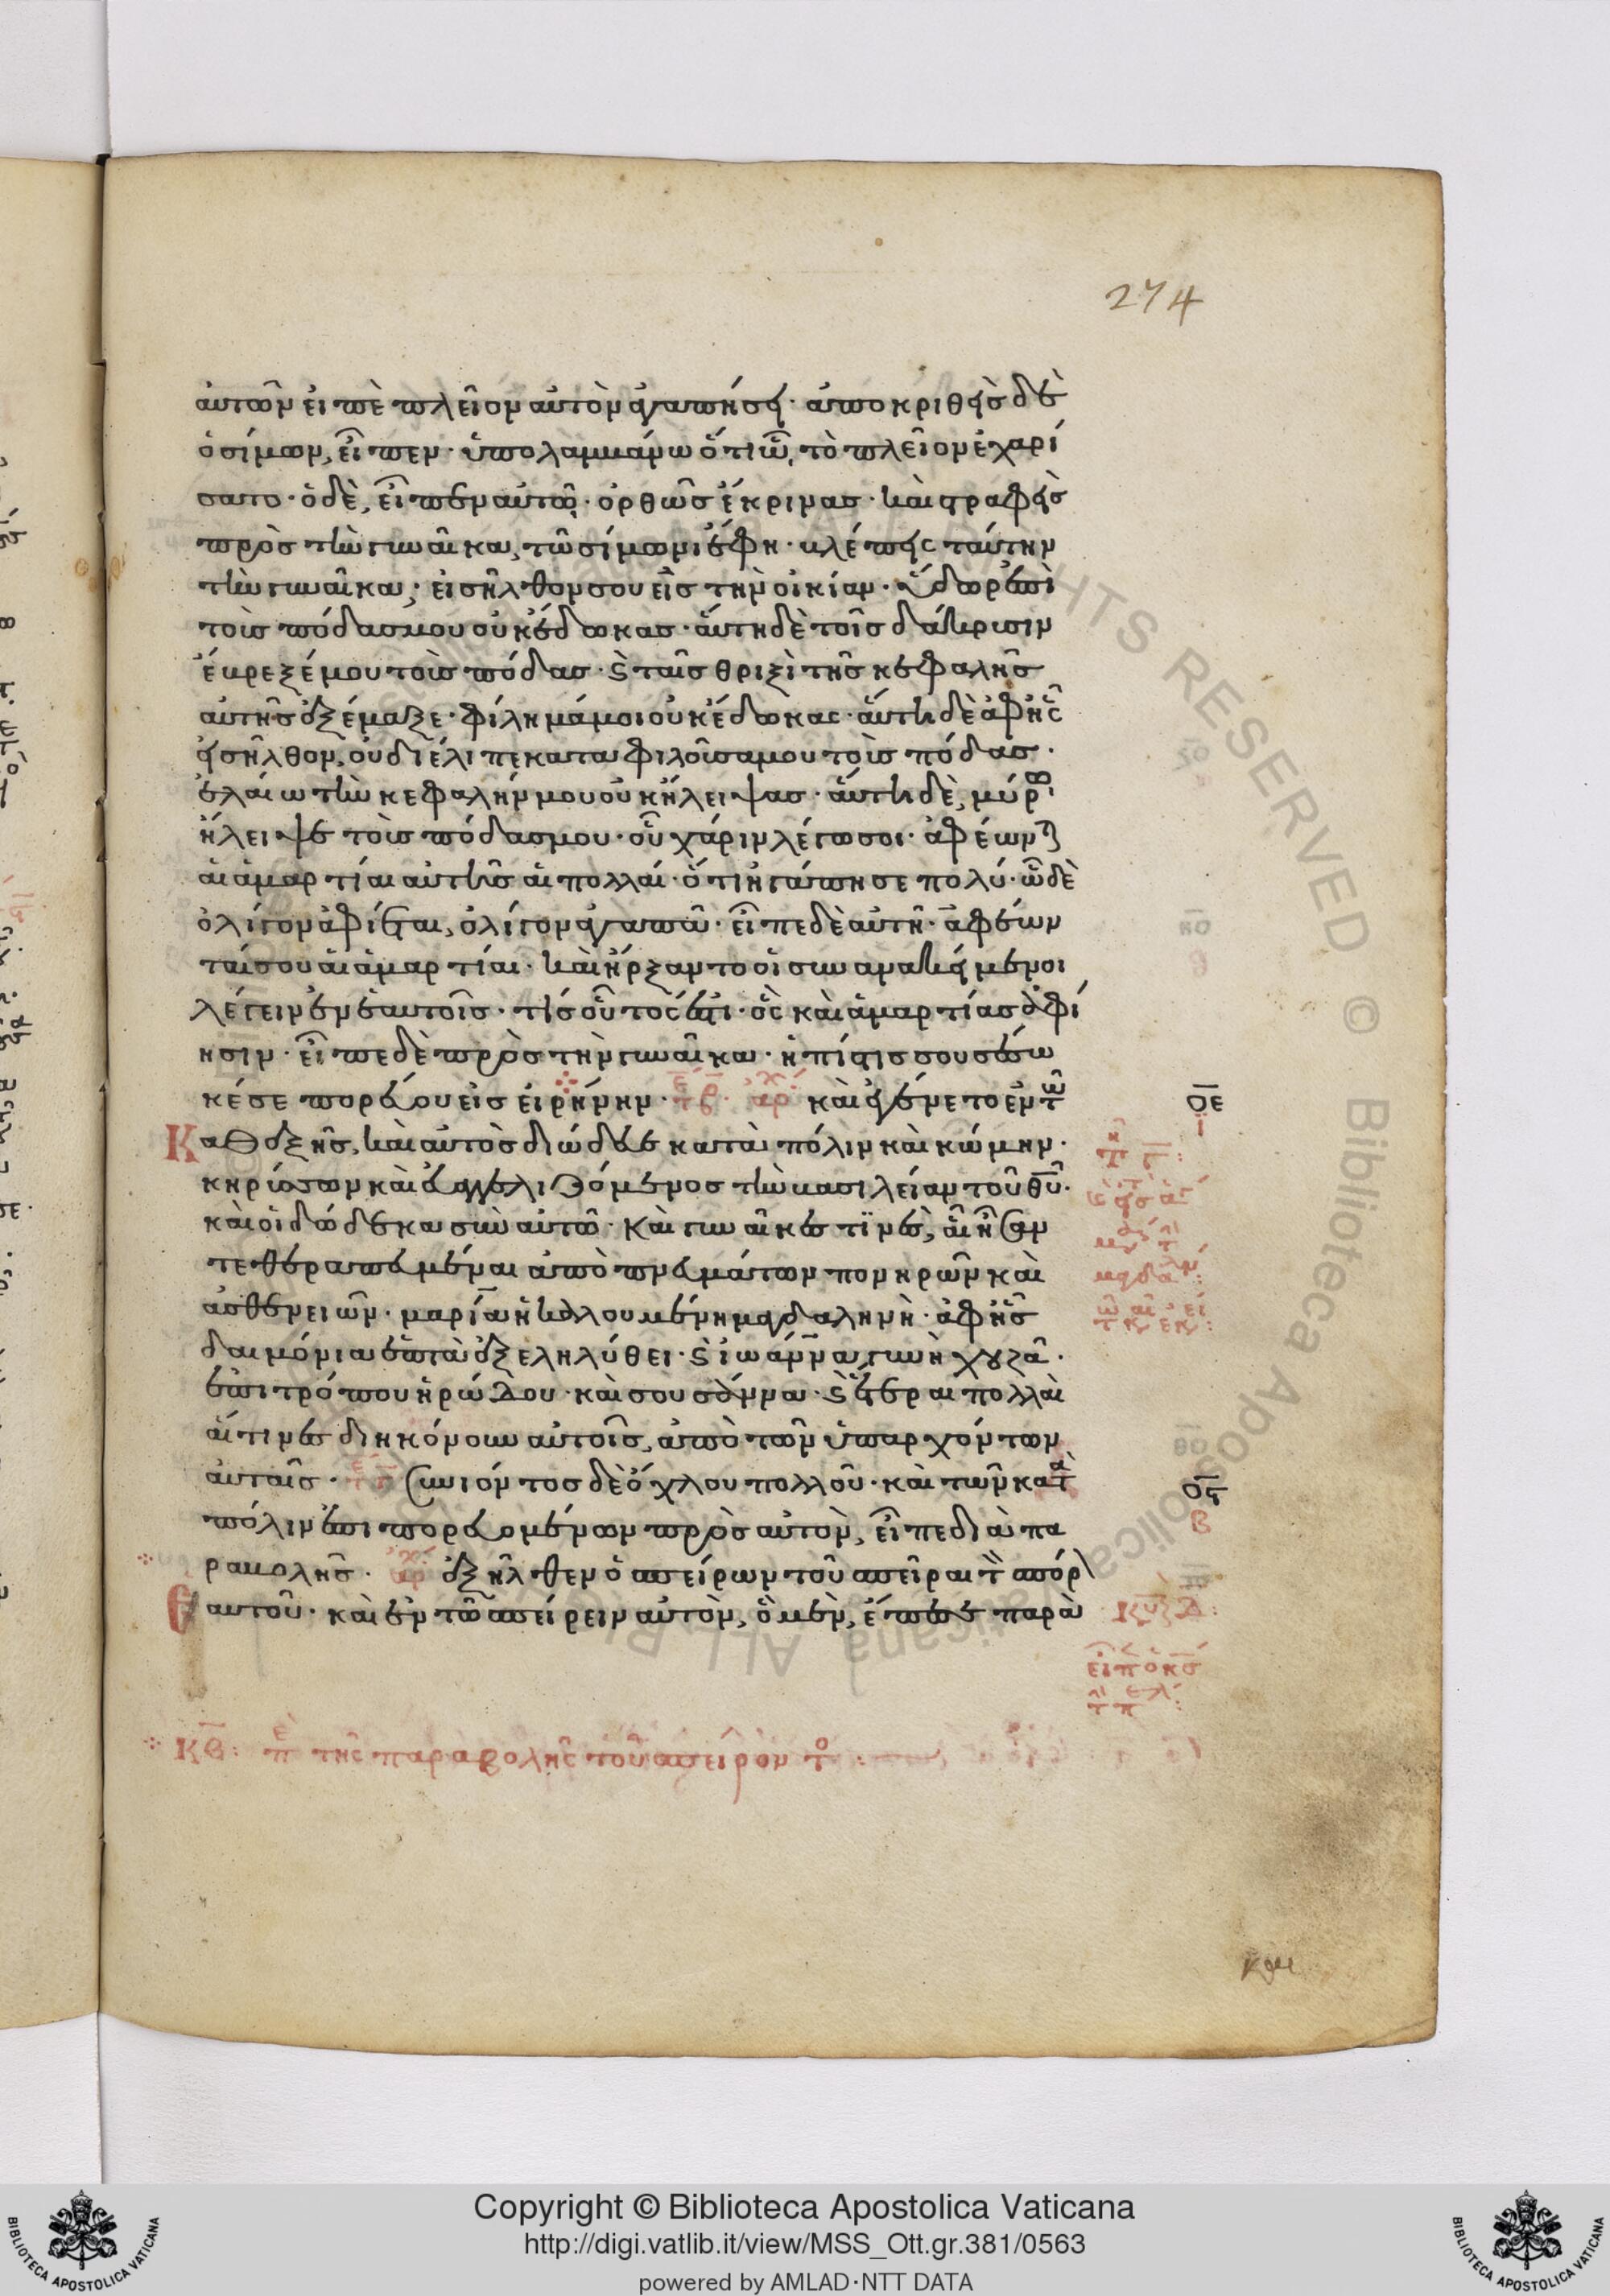 274
αὐτῶν εἰπὲ πλεῖον αὐτὸν ἀγαπήσει · ἀποκριθεὶς δὲ
ὁ σίμων, εἶπεν · ὑπολαμβάνω ὅτι ὧ, τὸ πλεῖον ἐχαρί
σατο · ὁ δὲ, εἶπεν αὐτῶ · ὀρθῶς ἔκρινας · καὶ στραφεὶς
πρὸς τὴν γυναῖκα, τῶ σίμωνι ἔφη · βλέπεις ταύτην
τὴν γυναῖκα; εἰσῆλθον σου εἰς τὴν οἰκίαν · ὕδωρ ἐπὶ
τοὺς πόδας μου οὐκ ἔδωκας · αὕτη δὲ τοῖς δάκρυσιν
ἔβρεξέ μου τοὺς πόδας · ϛ ταῖς θριξὶ τῆς κεφαλῆς
αὐτῆς ἐξέμαξε · φίλημά μοι οὐκ ἔδωκας · αὕτη δὲ ἀφ ἧς
εἰσῆλθον, οὐ διέλιπε καταφιλοῦσα μου τοὺς πόδας ·
ἐλαίω τὴν κεφαλήν μου οὐκ ἤλειψας · αὕτη δὲ, μύρω
ἤλειψε τοὺς πόδας μου · οὗ χάριν λέγω σοι · ἀφέωνται
αἱ ἁμαρτίαι αὐτῆς αἱ πολλαί · ὅτι ἠγάπησε πολύ · ὧ δὲ
ὀλίγον ἀφίεται, ὀλίγον ἀγαπᾶ · εἶπε δὲ αὐτῆ · ἀφέων
ταί σου αἱ ἁμαρτίαι · καὶ ἤρξαντο οἱ συνανακείμενοι
λέγειν ἐν ἑαυτοῖς · τίς οὗτος ἐστι · ὃς καὶ ἁμαρτίας ἀφί
ησιν · εἶπε δὲ πρὸς τὴν γυναῖκα · ἡ πίστις σου σέσω
κέ σε πορεύου εἰς εἰρήνην · καὶ ἐγένετο ἐν τῶ
Καθεξῆς, καὶ αὐτὸς διώδευε κατὰ πόλιν καὶ κώμην ·
κηρύσσων καὶ εὐαγγελιζόμενος τὴν βασιλείαν τοῦ θυ ·
καὶ οἱ δώδεκα σὺν αὐτῶ · καὶ γυναῖκες τινὲς, αἳ ἦσαν
τεθεραπευμέναι ἀπὸ πνευμάτων πονηρῶν καὶ
ἀσθενειῶν · μαρία ἡ καλουμένη μαγδαληνὴ · ἀφ ἧς
δαιμόνια ἑπτὰ ἐξεληλύθει · ϛ ἰωάννα γυνὴ χουζᾶ ·
ἐπιτρόπου ἡρώδου · καὶ σουσάννα · ϛ ἕτεραι πολλαὶ
αἵτινες διηκόνουν αὐτοῖς, ἀπὸ τῶν ὑπαρχόντων
αὐταῖς · Συνιόντος δὲ ὄχλου πολλοῦ · καὶ τῶν κατὰ
πόλιν ἐπιπορευομένων πρὸς αὐτὸν, εἶπε διὰ πα
ραβολῆς · ἐξῆλθεν ὁ σπείρων τοῦ σπεῖραι τ σπόρ
Εαυτοῦ · καὶ ἐν τῶ σπείρειν αὐτὸν, ὃ μὲν, ἔπεσε παρὰ
οε
ι
οϛ
β
κθ : π τῆς παραβολῆς τοῦ σπείρον τ :
Copyright © Biblioteca Apostolica Vaticana
http://digi.vatlib.it/view/MSS_Ott.gr.381/0563
powered by AMLAD·NTT DATA
BIBLIOTECA APOSTOLICA VATICANA
BIBLIOTECA APOSTOLICA VATICANA